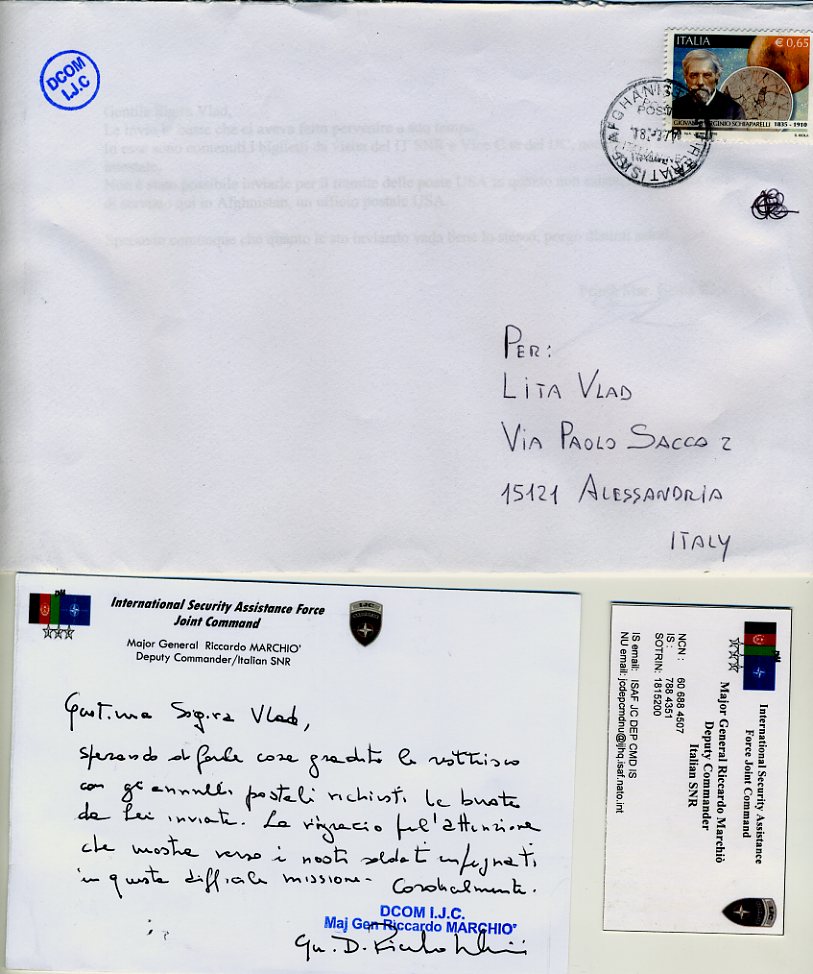 DCOM
I.J.C
ITALIA
€ 0,65
GIOVANNI VIRGINIO SCHIAPARELLI 1835 - 1910
AFGHANIS
POST
Gentile Sig.ra Vlad,
di servizio qui in Afghanistan, un ufficio postale USA.
PER:
LITA VLAD
VIA PAOLO SACCO 2
15121 ALESSANDRIA
ITALY
International Security Assistance Force
Joint Command
Major General Riccardo MARCHIO'
Deputy Commander/Italian SNR
IJC
Gentima Sig.ra Vlad,
sperando di farle cosa gradita le restituisco
con gli annulli postali richiesti le buste
da Lei inviate. La ringrazio per l'attenzione
che mostra verso i nostri soldati impegnati
in questa difficile missione. Cordialmente.
DCOM I.J.C.
Maj Gen Riccardo MARCHIO'
Gen. D.
International Security Assistance
Force Joint Command
Major General Riccardo Marchiò
Deputy Commander
Italian SNR
NCN : 60 688 4507
IS : 788 4351
SOTRIN: 1815200
IS email: ISAF JC DEP CMD IS
NU email: jcdepcmdnu@ijhq.isaf.nato.int